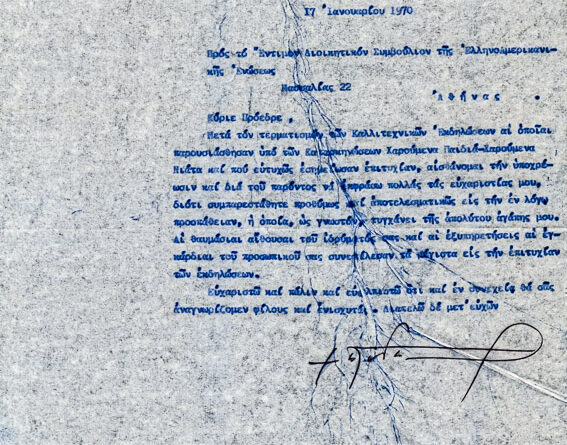 17 Ἰανουαρίου 1970
Πρός τό Ἔντιμον Διοικητικόν Συμβούλιον τῆς ἙλληνοΑμερικανι-
κῆς Ἑνώσεως
Μασσαλίας 22
Ἀ θ ῆ ν α ς .
Κύριε Πρόεδρε ,
Μετά τόν τερματισμόν τῶν Καλλιτεχνικῶν Ἐκδηλώσεων αἱ ὁποῖαι
παρουσιάσθησαν ὑπό τῶν Κατασκηνώσεων Χαρούμενα Παιδιά-Χαρούμενα
Νιάτα καί πού εὐτυχῶς ἐσημείωσαν ἐπιτυχίαν, αἰσθάνομαι τήν ὑποχρέ-
ωσιν καί διά τοῦ παρόντος νά ἐκφράσω πολλάς τάς εὐχαριστίας μου,
διότι συμπαρεστάθητε προθύμως καί ἀποτελεσματικῶς εἰς τήν ἐν λόγῳ
προσπάθειαν, ἡ ὁποία, ὡς γνωστόν, τυγχάνει τῆς ἀπολύτου ἀγάπης μου.
Αἱ θαυμάσιαι αἴθουσαι τοῦ ἱδρύματός σας καί αἱ ἐξυπηρετήσεις αἱ ἐγ-
κάρδιαι τοῦ προσωπικοῦ σας συνετέλεσαν τά μέγιστα εἰς τήν ἐπιτυχίαν
τῶν ἐκδηλώσεων.
Εὐχαριστῶ καί πάλιν καί εὐελπιστῶ ὅτι καί ἐν συνεχείᾳ θά σᾶς
ἀναγνωρίζομεν φίλους καί ἐνισχυτάς. Διατελῶ δέ μετ' εὐχῶν